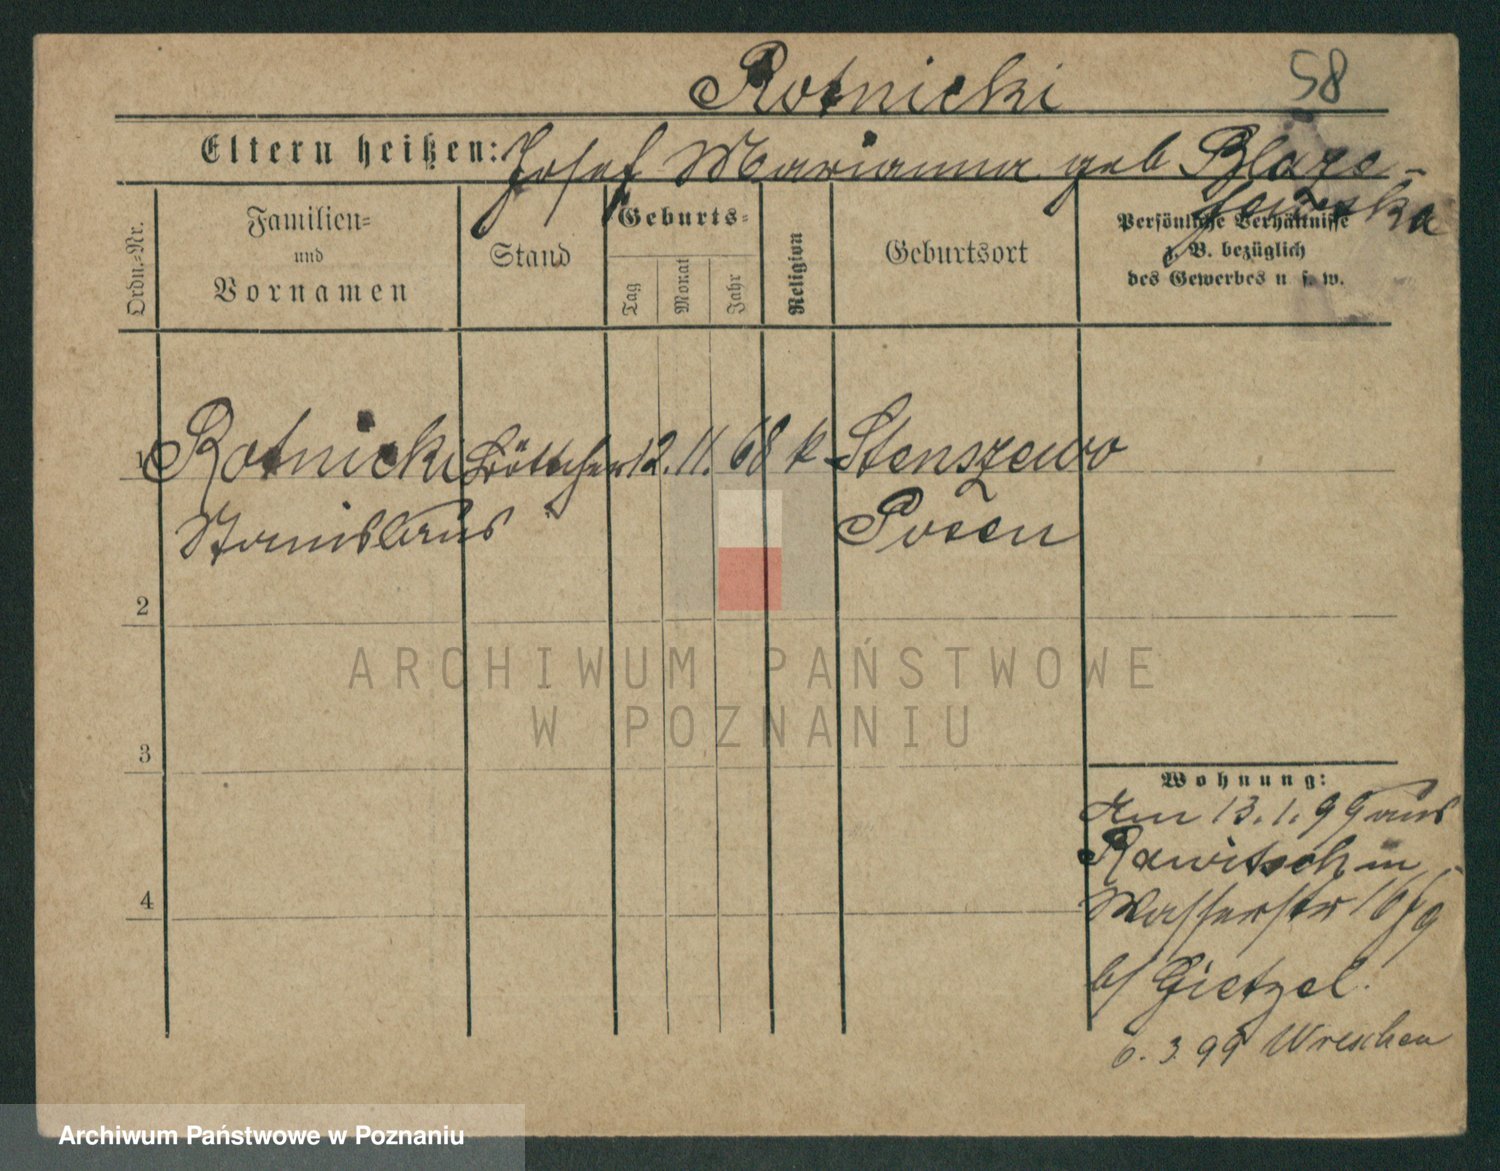 Rotnicki 58
Eltern heißen: Josef Marianna geb Blaze-
Familien=
und
Vornamen
Ordn.-Nr.
Stand
Geburts=
Tag
Monat
Jahr
Religion
Geburtsort
Persönliche Verhältnisse
z. B. bezüglich
des Gewerbes u. s. w.
1 Rotnicki Böttcher 12. 11. 68 k Stenszewo
Stanislaus Posen
2
3
4
ARCHIWUM PAŃSTWOWE
W POZNANIU
Wohnung:
Am 13. 1. 99 aus
Rawitsch in
Wasserstr 16/9
b/ Gietzel.
6. 3. 99 Wreschen
Archiwum Państwowe w Poznaniu